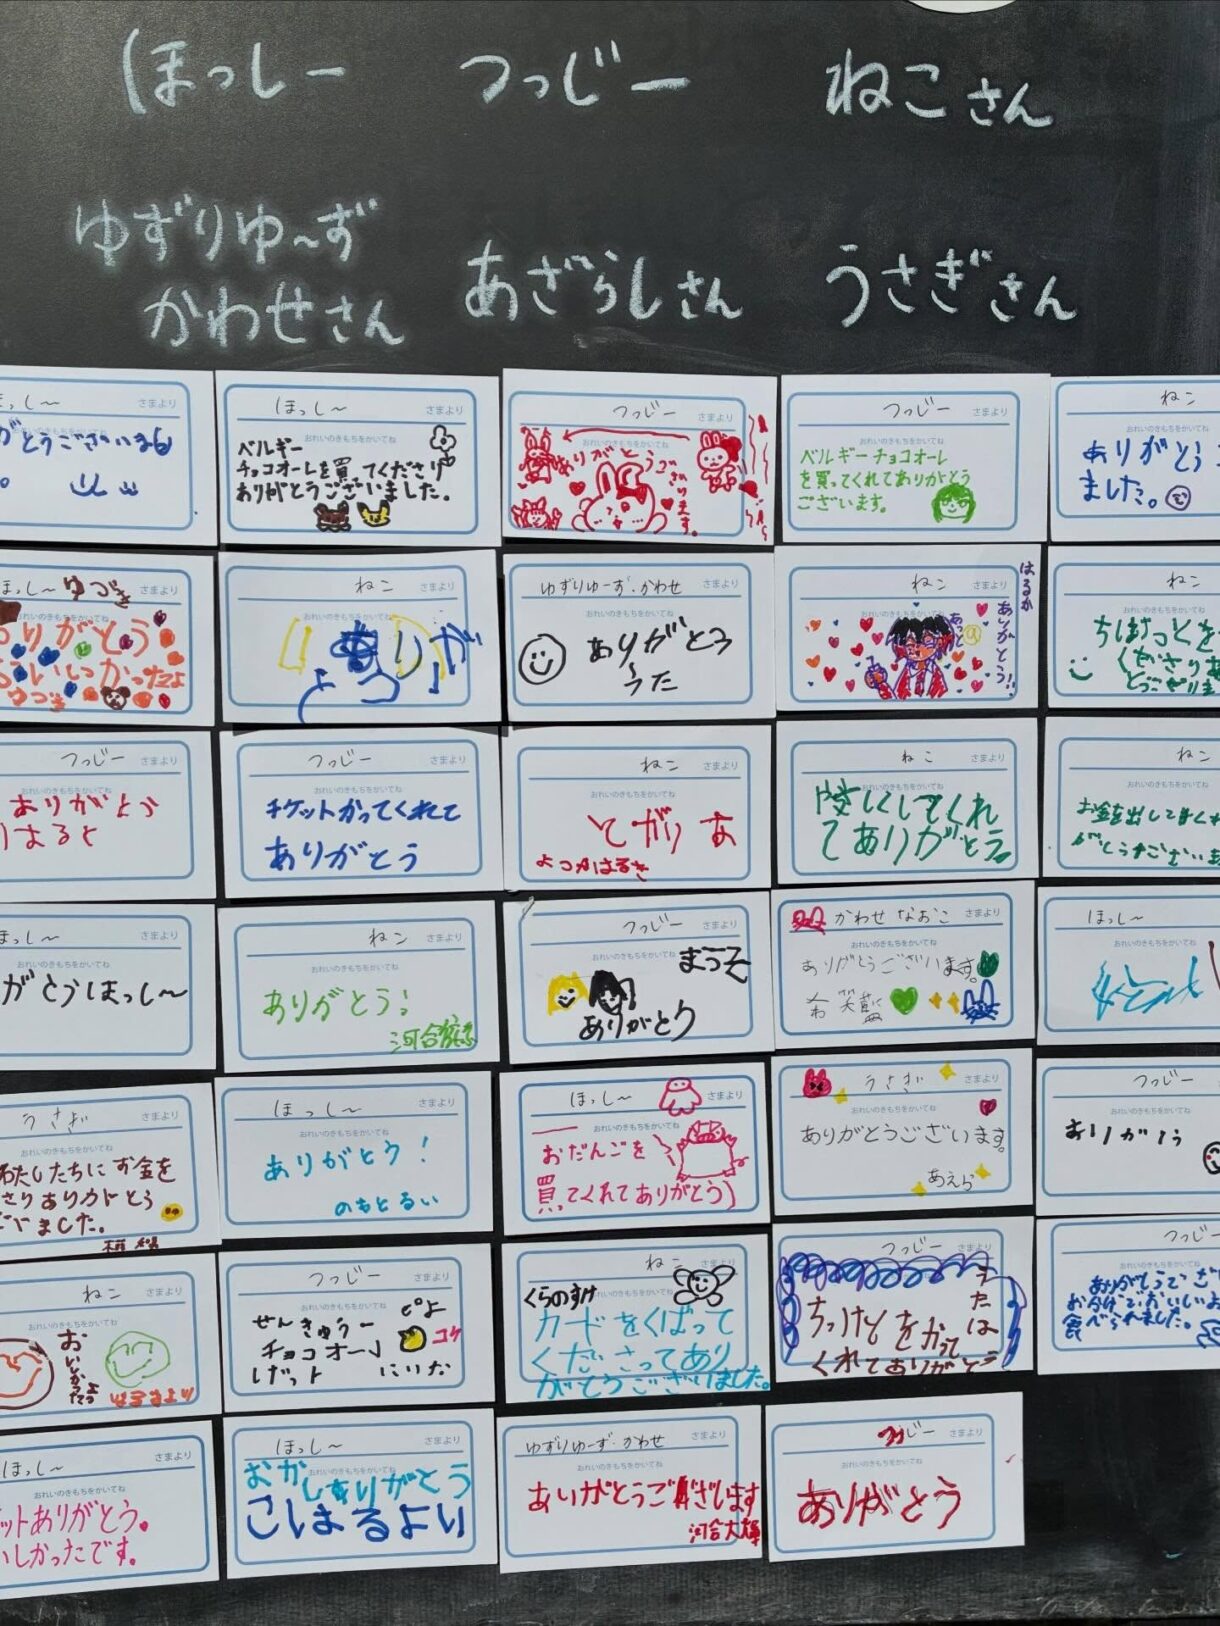 ほっしー
つっじー
ねこさん
ゆずりゆ〜ず
かわせさん
あざらしさん
うさぎさん
っし〜 さまより
がとうございます
ほっし〜 さまより
おれいのきもちをかいてね
ベルギー
チョコオーレを買ってくださり
ありがとうございました。
つっじー さまより
おれいのきもちをかいてね
ありがとうござります。
つっじー さまより
おれいのきもちをかいてね
ベルギーチョコオーレ
を買ってくれてありがとう
ございます。
ねこ
ありがとう
ました。
ほっし〜 ゆづき さまより
おれいのきもちをかいてね
りがとう
ゆづき
ねこ さまより
おれいのきもちをかいてね
ゆずりゆーず・かわせ さまより
おれいのきもちをかいてね
ありがとう
うた
ねこ さまより
はるか
ありがとう!!
ねこ
おれいのきもちをかいてね
ちけっとを
くださりあ
つっじー さまより
おれいのきもちをかいてね
ありがとう
はると
つっじー さまより
おれいのきもちをかいてね
チケットかってくれて
ありがとう
ねこ さまより
おれいのきもちをかいてね
とがりあ
よつかはるき
ねこ さまより
おれいのきもちをかいてね
しくしてくれ
てありがとう。
ねこ
おれいのきもちをかいてね
お金を出して
がとうございま
ほっし〜 さまより
おれいのきもちをかいてね
がとうほっし〜
ねこ さまより
おれいのきもちをかいてね
ありがとう!
河合
つっじー さまより
おれいのきもちをかいてね
まっそ
ありがとう
かわせなおこ さまより
おれいのきもちをかいてね
ありがとうございます。
ほっし〜
おれいのきもちをかいてね
うさぎ さまより
おれいのきもちをかいてね
わたしたちにお金を
さりありがとう
ました。
ほっし〜 さまより
おれいのきもちをかいてね
ありがとう!
のもとるい
ほっし〜 さまより
おれいのきもちをかいてね
おだんごを
買ってくれてありがとう
うさぎ さまより
おれいのきもちをかいてね
ありがとうございます。
あえら
つっじー
おれいのきもちをかいてね
ありがとう
ねこ さまより
おれいのきもちをかいてね
おいしかったよ
はるより
つっじー さまより
おれいのきもちをかいてね
せんきゅうー
チョコオーレ
げっト
ぴよ
コケ
にいな
ねこ さまより
くらのすけ
カードをくばって
くださってあり
がとうございました。
つっじー さまより
うたは
ちっけとをかって
くれてありがとう
つっじー
おれいのきもちをかいてね
ありがとうござ
おかげでおいしいお
食べられました。
ほっし〜 さまより
おれいのきもちをかいてね
ットありがとう。
いしかったです。
ほっし〜 さまより
おれいのきもちをかいてね
おかしありがとう
こしまるより
ゆずりゆーず・かわせ さまより
おれいのきもちをかいてね
ありがとうございます
河合大輝
つっじー さまより
おれいのきもちをかいてね
ありがとう